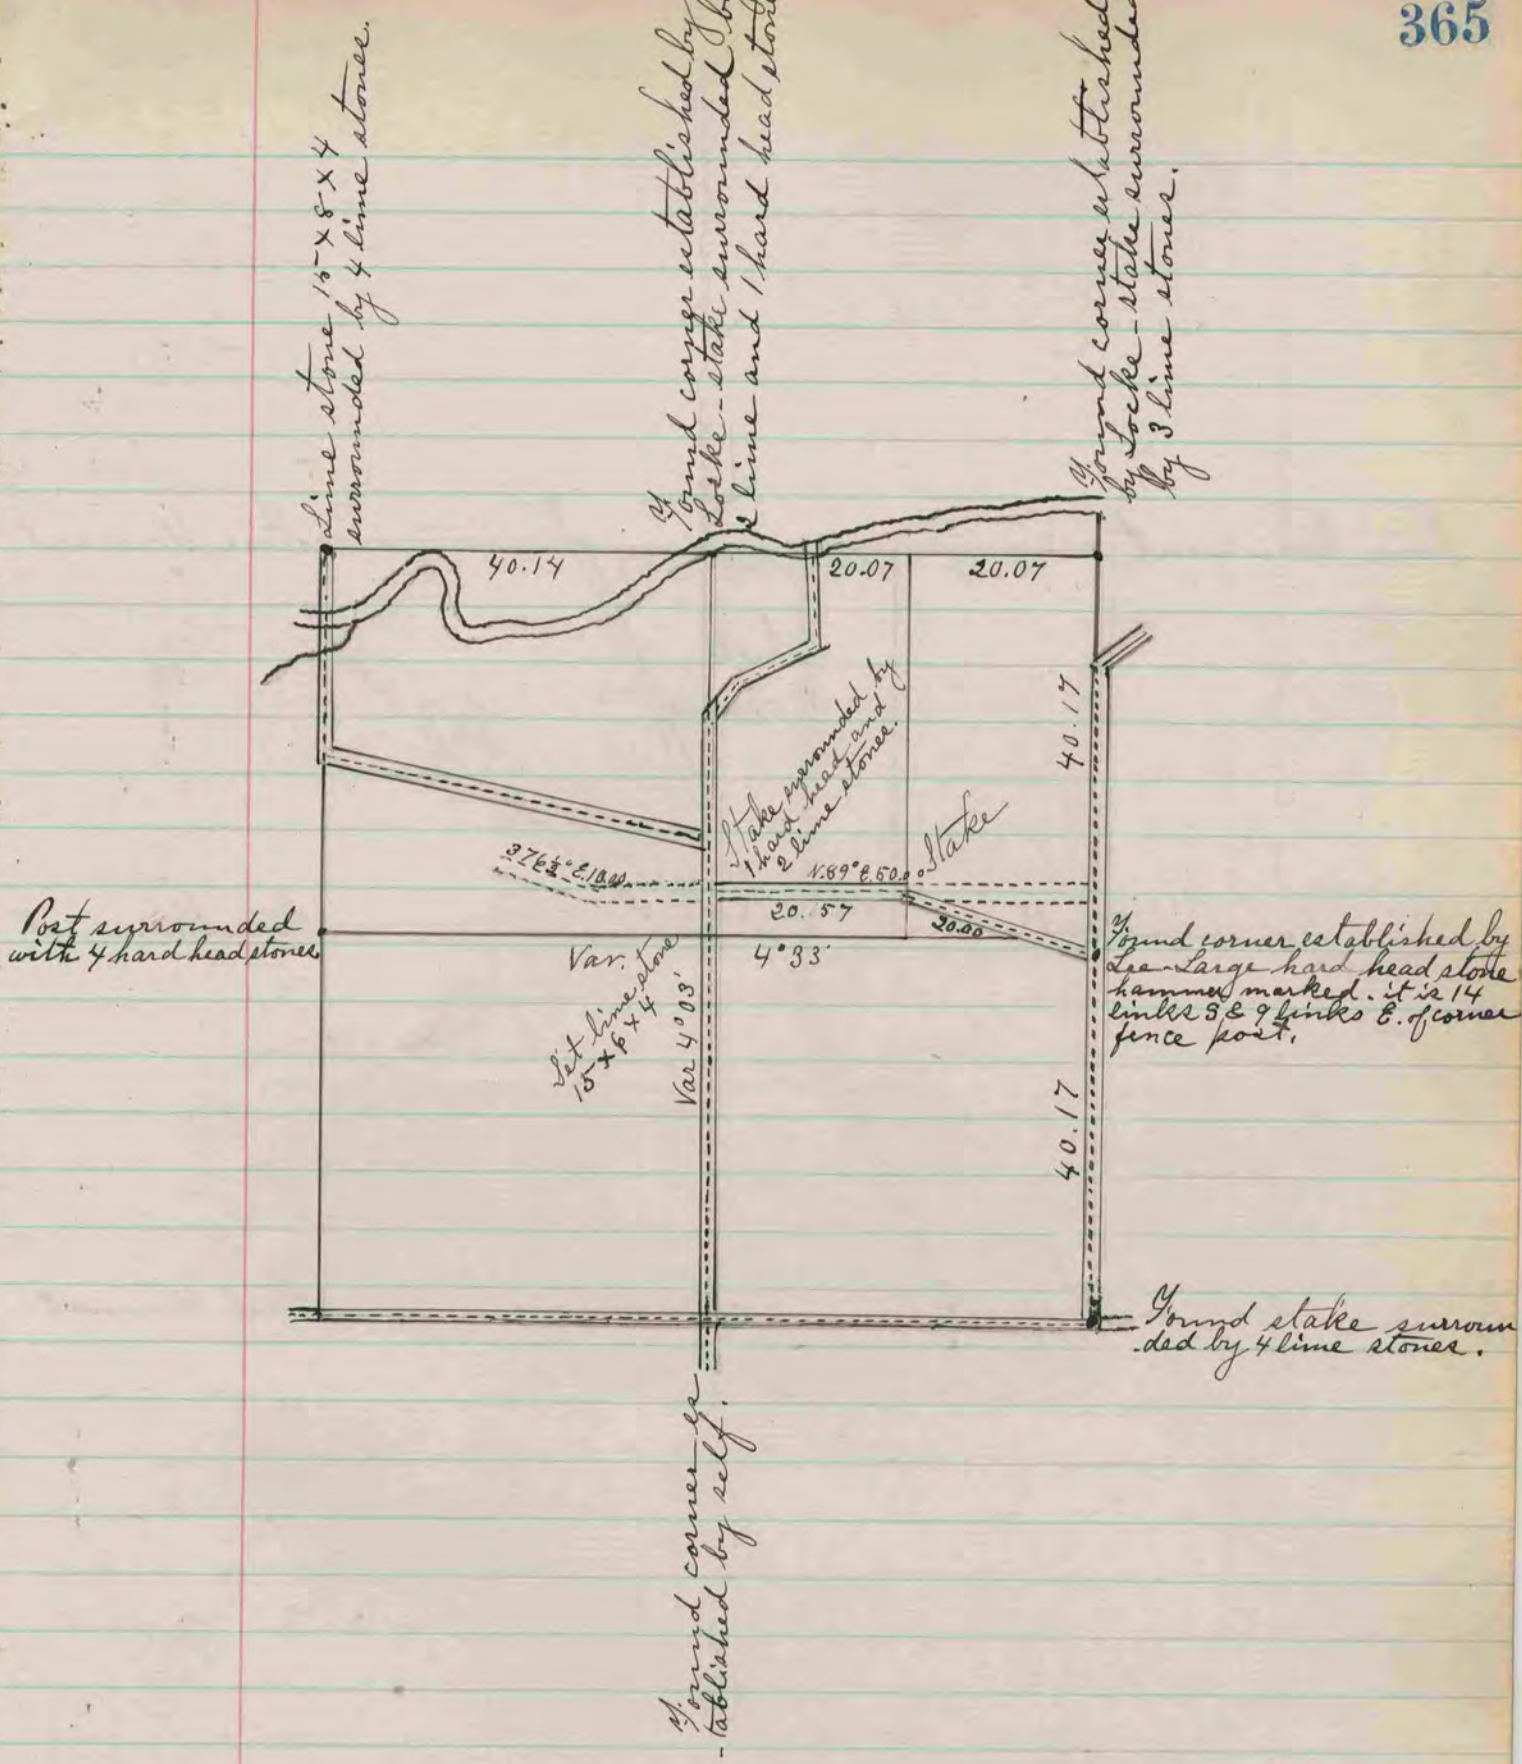 365
Lime stone 15 x 8 x 4
surrounded by 4 lime stones.
Found corner established by
Locke - stake surrounded
2 lime and 1 hard head
Found corner established
by Locke - stake surrounded
by 3 lime stones.
40.14
20.07
20.07
40.17
Stake surrounded by
1 hard head and
2 lime stones.
Stake
N. 89° E. 50.00
E. 10.00
20.57
20.00
Post surrounded
with 4 hard head stones
Var. 4°33'
Set lime stone
15 x 6 x 4
Var 4°03'
Found corner established by
Lee - Large hard head stone
hammer marked. it is 14
links S & 9 links E. of corner
fence post.
40.17
Found stake surroun
-ded by 4 lime stones.
Found corner es
-tablished by self.